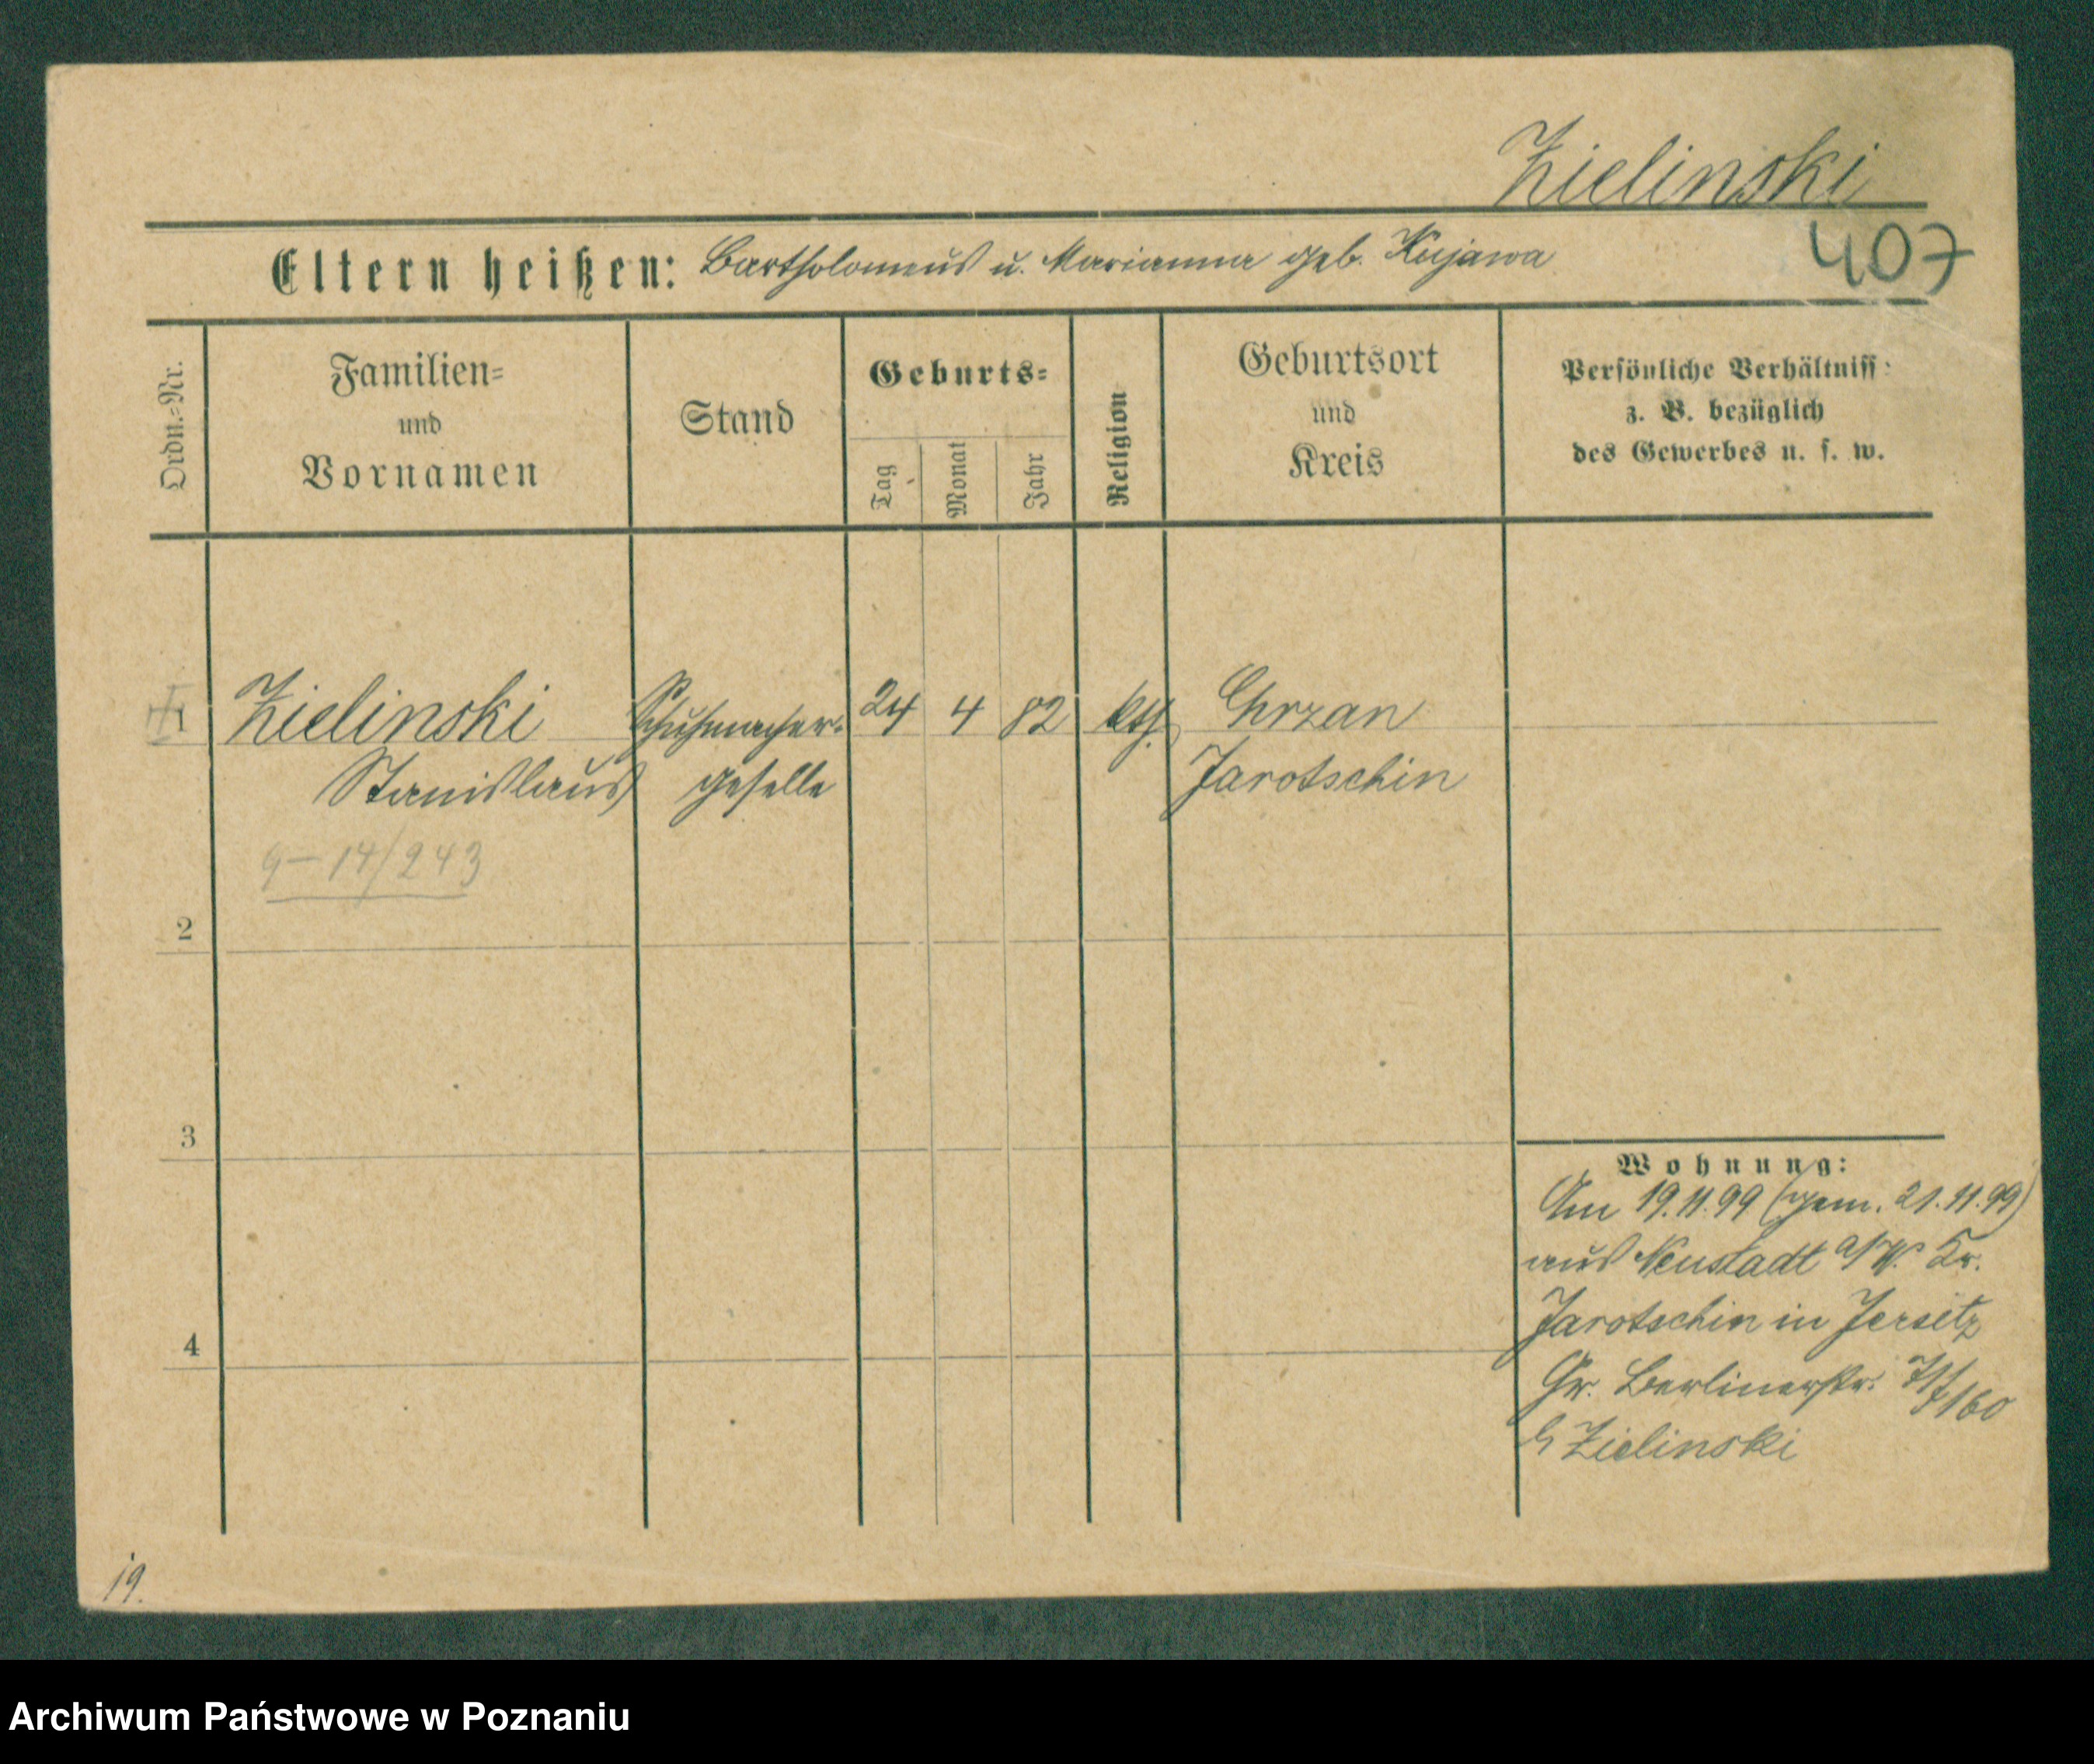 Zielinski
407
Eltern heißen: Bartholomeus u. Marianna geb. Kujawa
Ordn.-Nr.
Familien-
und
Vornamen
Stand
Geburts-
Tag
Monat
Jahr
Religion
Geburtsort
und
Kreis
Persönliche Verhältniss
z. B. bezüglich
des Gewerbes u. s. w.
1 Zielinski Schuhmacher- 24 4 82 kth. Chrzan
Stanislaus geselle Jarotschin
9-14/243
2
3
4
Wohnung:
Am 19.11.99 (gem. 21.11.99)
aus Neustadt a/W. Kr.
Jarotschin in Jersitz
Gr. Berlinerstr.
Zielinski
19.
Archiwum Państwowe w Poznaniu